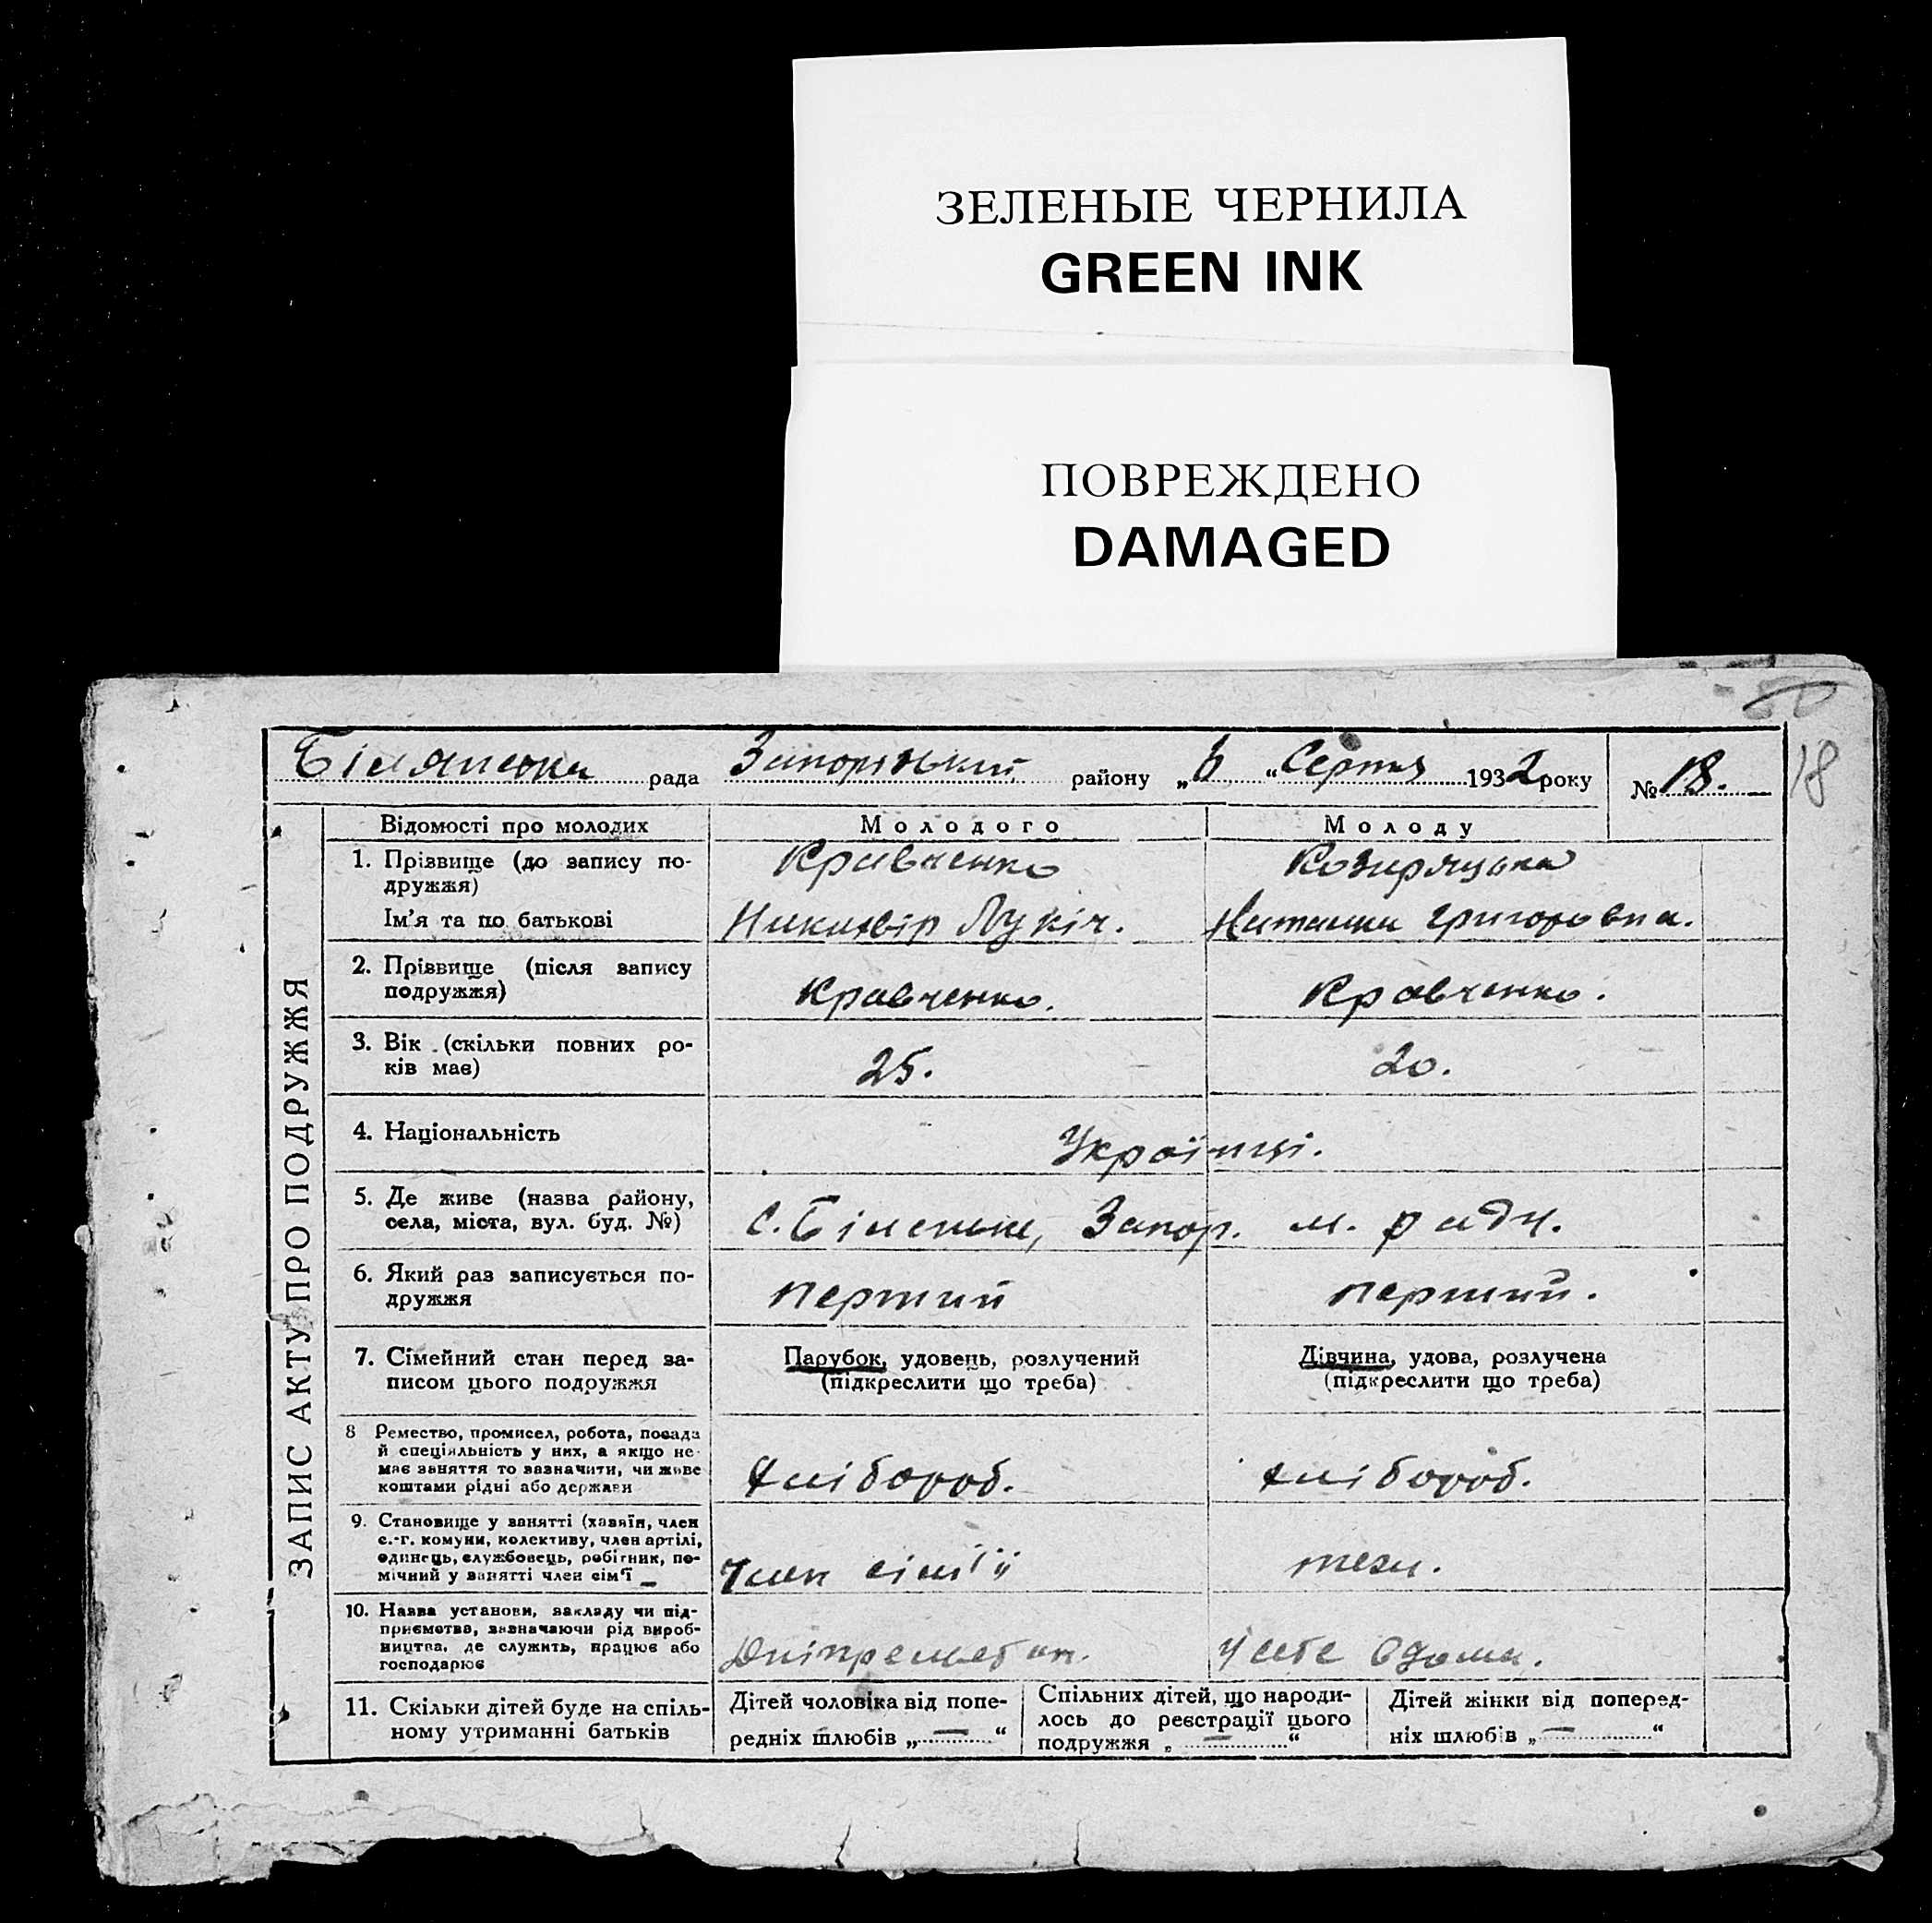 ЗЕЛЕНЫЕ ЧЕРНИЛА
GREEN INK
ПОВРЕЖДЕНО
DAMAGED
18
рада Запорізький району „6 “ Серпня 1932 року № 18.
ЗАПИС АКТУ ПРО ПОДРУЖЖЯ
Відомості про молодих
Молодого
Молоду
1. Прізвище (до запису по-
дружжя)
Кравченко
Козиряцька
Ім'я та по батькові
Лукіч.
Наташка Григоровна.
2. Прізвище (після запису
подружжя)
Кравченко.
Кравченко.
3. Вік (скільки повних ро-
ків має)
25.
20.
4. Національність
Українці.
5. Де живе (назва району,
села, міста, вул. буд. №)
с. Біленьке, Запор. м. ради.
6. Який раз записується по-
дружжя
перший
перший.
7. Сімейний стан перед за-
писом цього подружжя
Парубок, удовець, розлучений
(підкреслити що треба)
Дівчина, удова, розлучена
(підкреслити що треба)
8 Ремество, промисел, робота, посада
й спеціяльність у них, а якщо не-
має заняття то зазначити, чи живе
коштами рідні або держави
Хлібороб.
хлібороб.
9. Становище у занятті (хазяїн, член
с.-г. комуни, колективу, член артілі,
одинець, службовець, робітник, по-
мічний у занятті член сім'ї
Член сім'ї
теж.
10. Назва установи, закладу чи під-
приємства, зазначаючи рід вироб-
ництва, де служить, працює або
господарює
у себе вдома.
11. Скільки дітей буде на спіль-
ному утриманні батьків
Дітей чоловіка від попе-
редніх шлюбів „ — “
Спільних дітей, що народи-
лось до реєстрації цього
подружжя „ — “
Дітей жінки від поперед-
ніх шлюбів „ — “